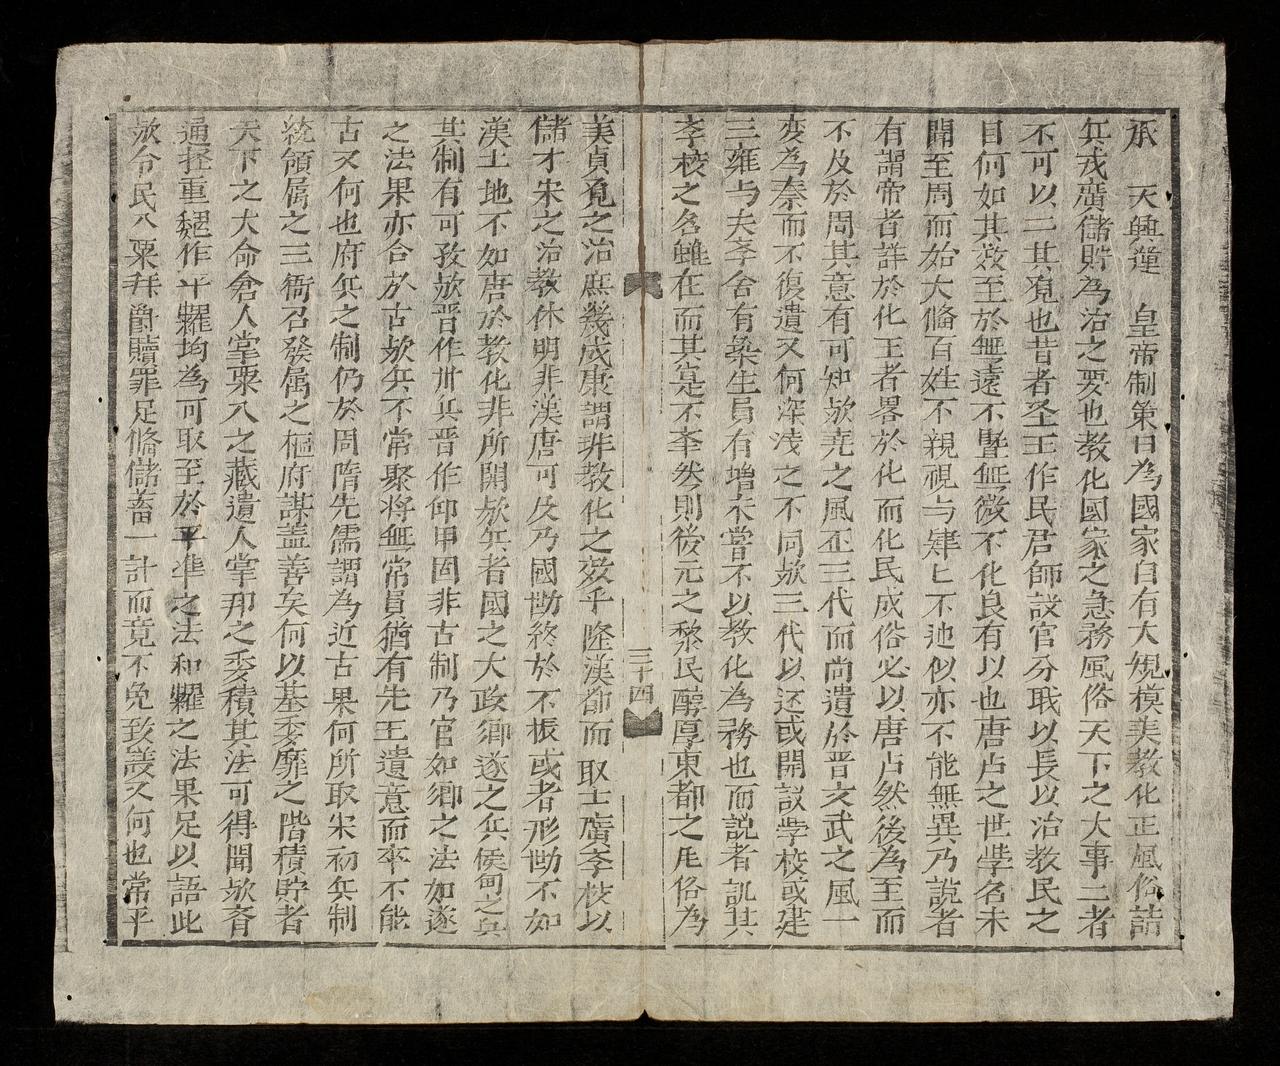 承　天興運　皇帝制策曰為國家自有大規模美教化正風俗詰
兵戎廣儲貯為治之要也教化國家之急務風俗天下之大事二者
不可以二其寛也昔者圣王作民君師設官分职以長以治教民之
目何如其效至於無遠不曁無微不化良有以也唐占之世斈名未
開至周而始大俻百姓不親視与肄匕不迆似亦不能無異乃說者
有謂帝者詳於化王者畧於化而化民成俗必以唐占然後為至而
不及於周其意有可知欤尭之風丕三代而尚遺於晋文武之風一
变為秦而不復遺又何深浅之不同欤三代以还或開設斈校或建
三雍与夫斈舍有
斈校之名雖在而其是不
美貞覌之治庶幾成康謂非教化之效乎隆漢都而取士廣斈校以
儲才宋之治教休明非漢唐可及乃國势終於不振或者形势不如
漢土地不如唐於教化非所開欤兵者國之大政卿遂之兵侯甸之兵
其制有可攷欤晋作州兵晋作仰甲固非古制乃官如卿之法如遂
之法果亦合於古欤兵不常聚将無常員猶有先王遺意而卒不能
古又何也府兵之制仍於周隋先儒謂為近古果何所取宋初兵制
統領属之三衙召發属之樞府謀盖善矣何以基委靡之階積貯者
天下之大命倉人掌粟入之藏遺人掌邦之委積其法可得聞欤斉
通轻重魏作平糶均為可取至於平準之法和糶之法果足以語此
欤令民入粟拜爵贖罪足俻儲畜一計而竟不免致譏又何也常平
三十四